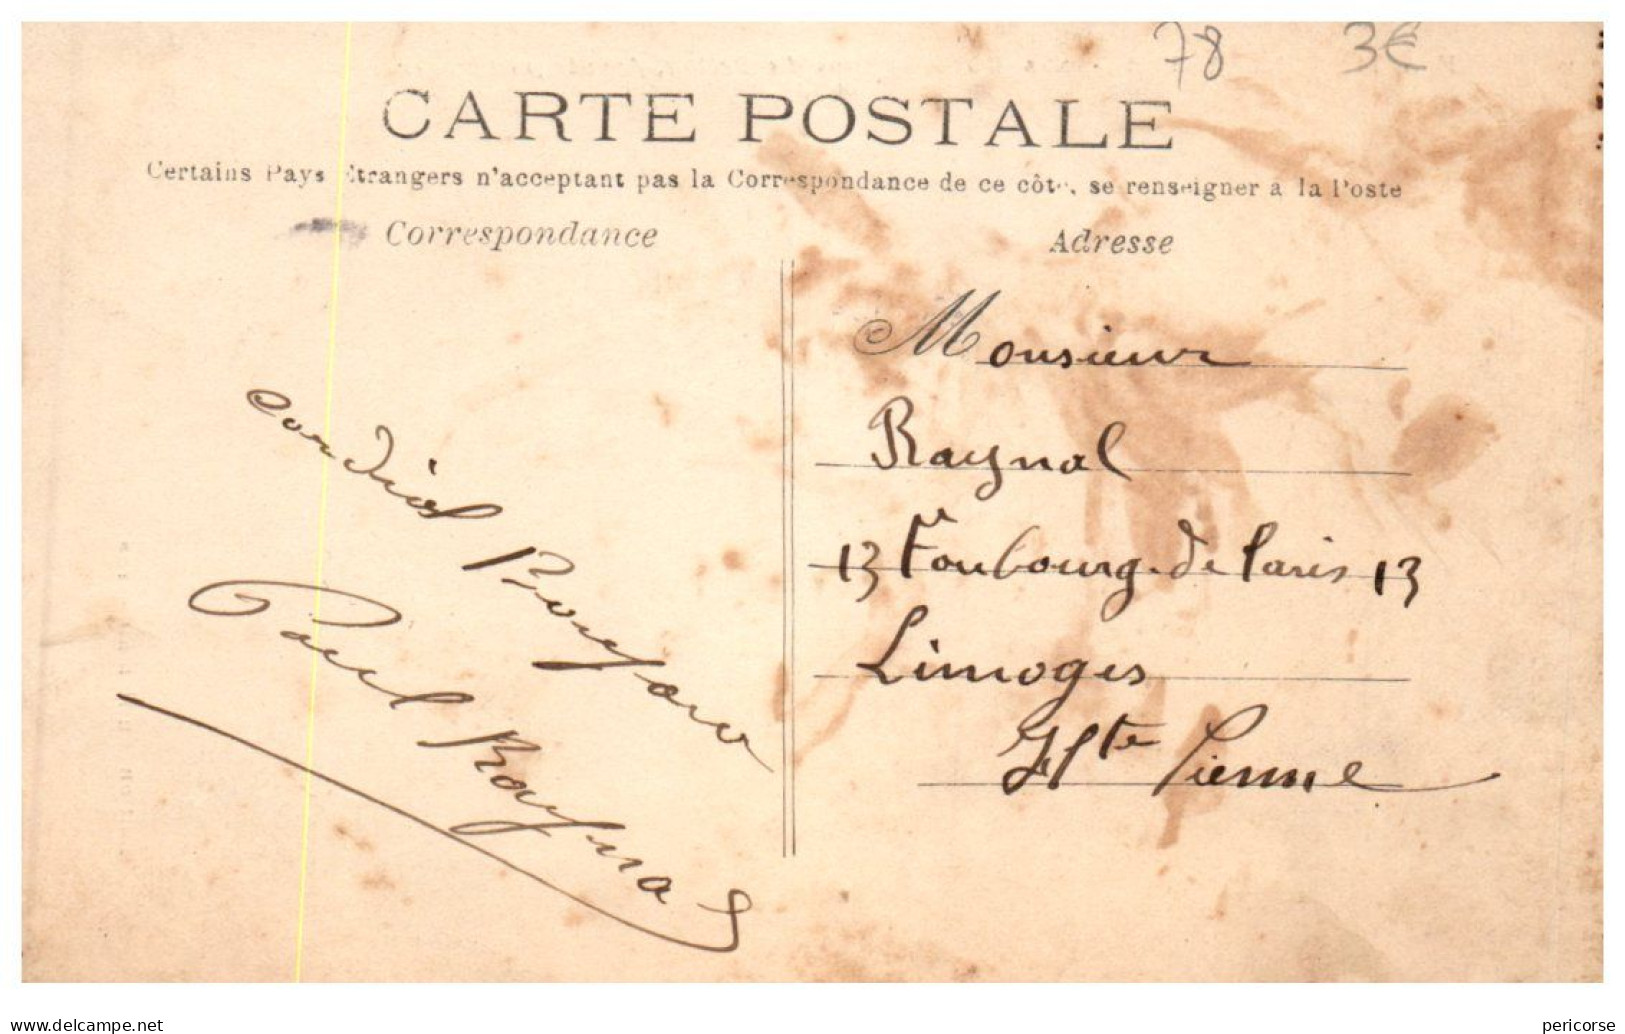 78 3€
CARTE POSTALE
Certains Pays Etrangers n'acceptant pas la Correspondance de ce côté, se renseigner à la Poste
Correspondance
Adresse
cordial Bonjour
Paul Raynal
Monsieur
Raynal
13 Faubourg de Paris 13
Limoges
Hte Vienne
www.delcampe.net
pericorse